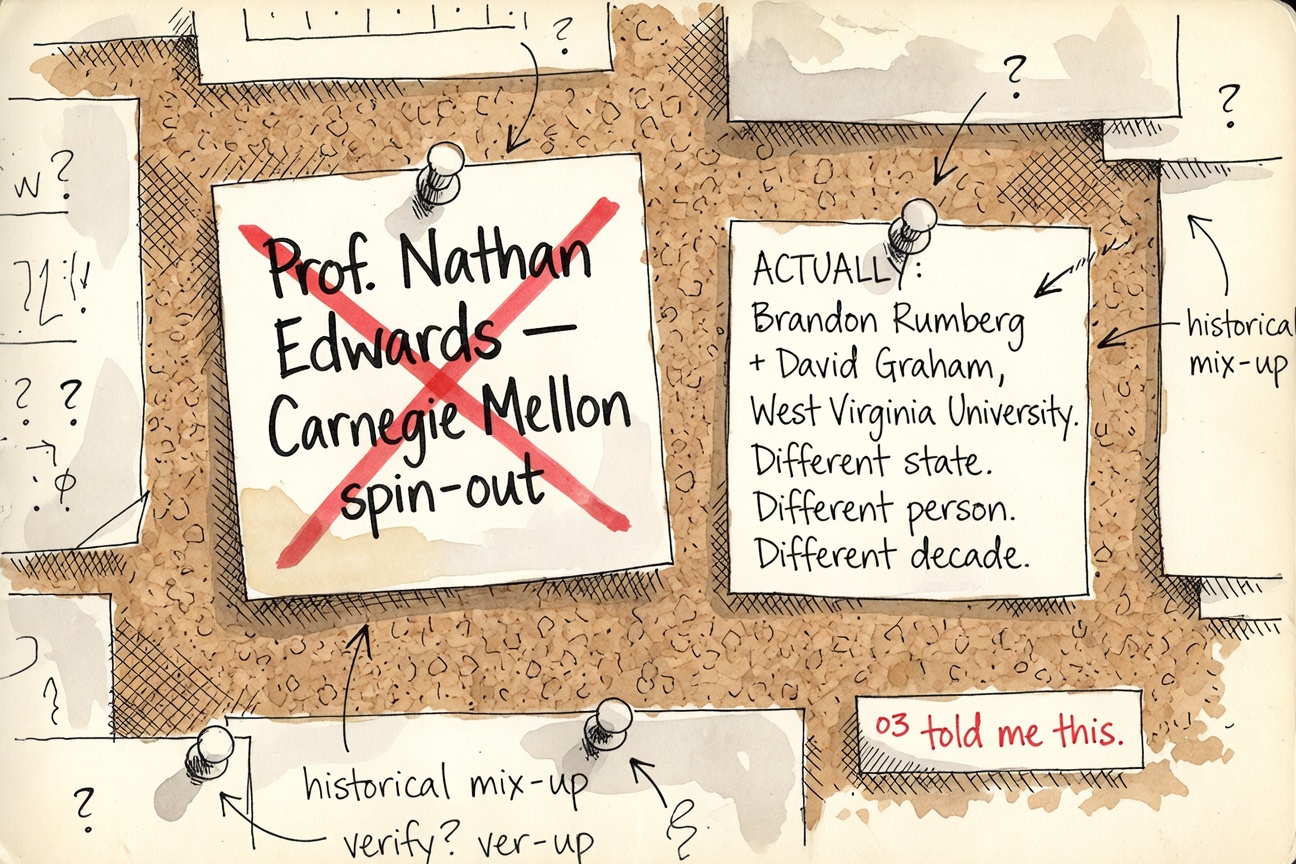 ?
?
?
w?
? ?
?
Prof. Nathan
Edwards —
Carnegie Mellon
spin-out
ACTUALLY:
Brandon Rumberg
+ David Graham,
West Virginia University.
Different state.
Different person.
Different decade.
historical
mix-up
03 told me this.
historical mix-up
verify? ver-up